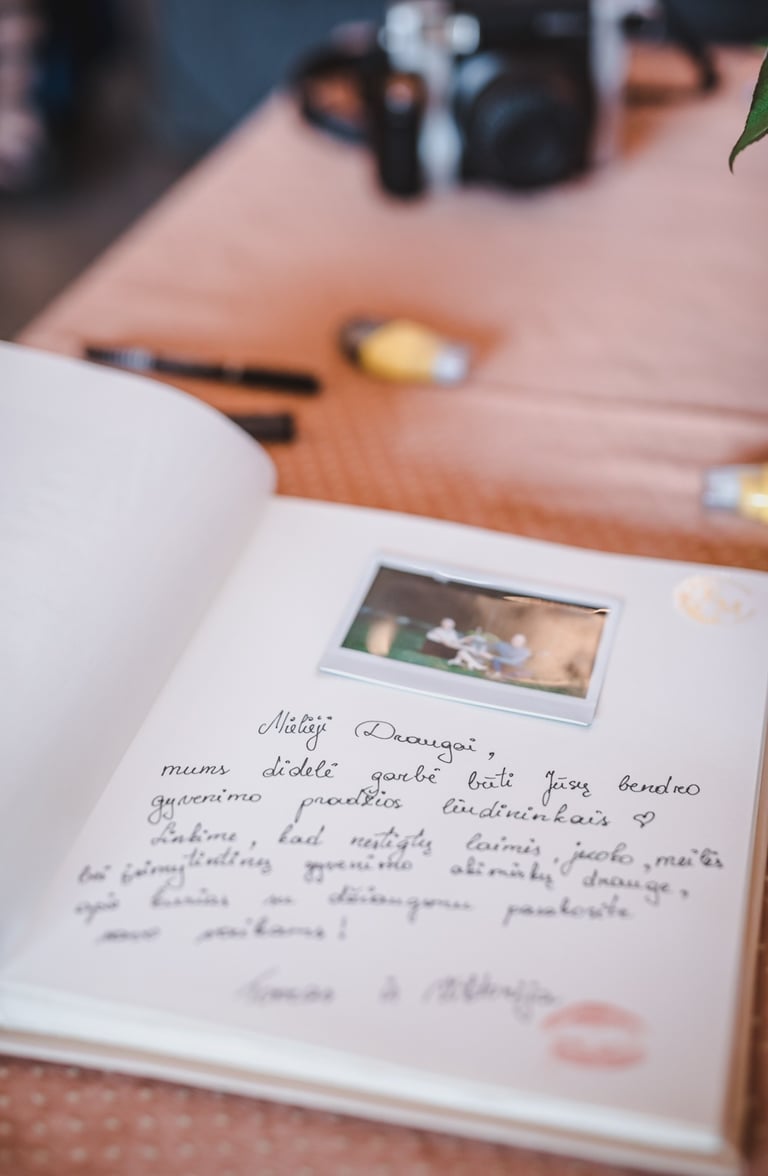 Mielieji Draugai,
mums didelė garbė būti Jūsų bendro
gyvenimo pradžios liudininkais ♡
Linkime, kad nestigtų laimės, juoko, meilės
bei įsimintinų gyvenimo akimirkų drauge,
apie kurias su džiaugsmu pasakosite
savo vaikams!
Tomas ir Viktorija